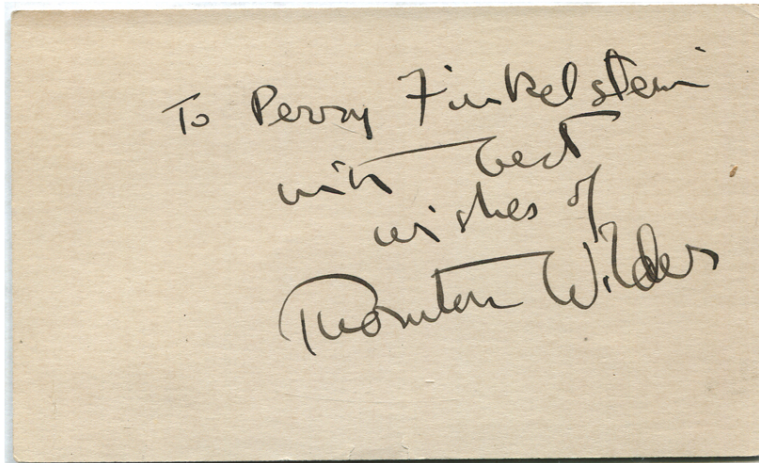 To Perry Finkelstein
with best
wishes of
Thornton Wilder